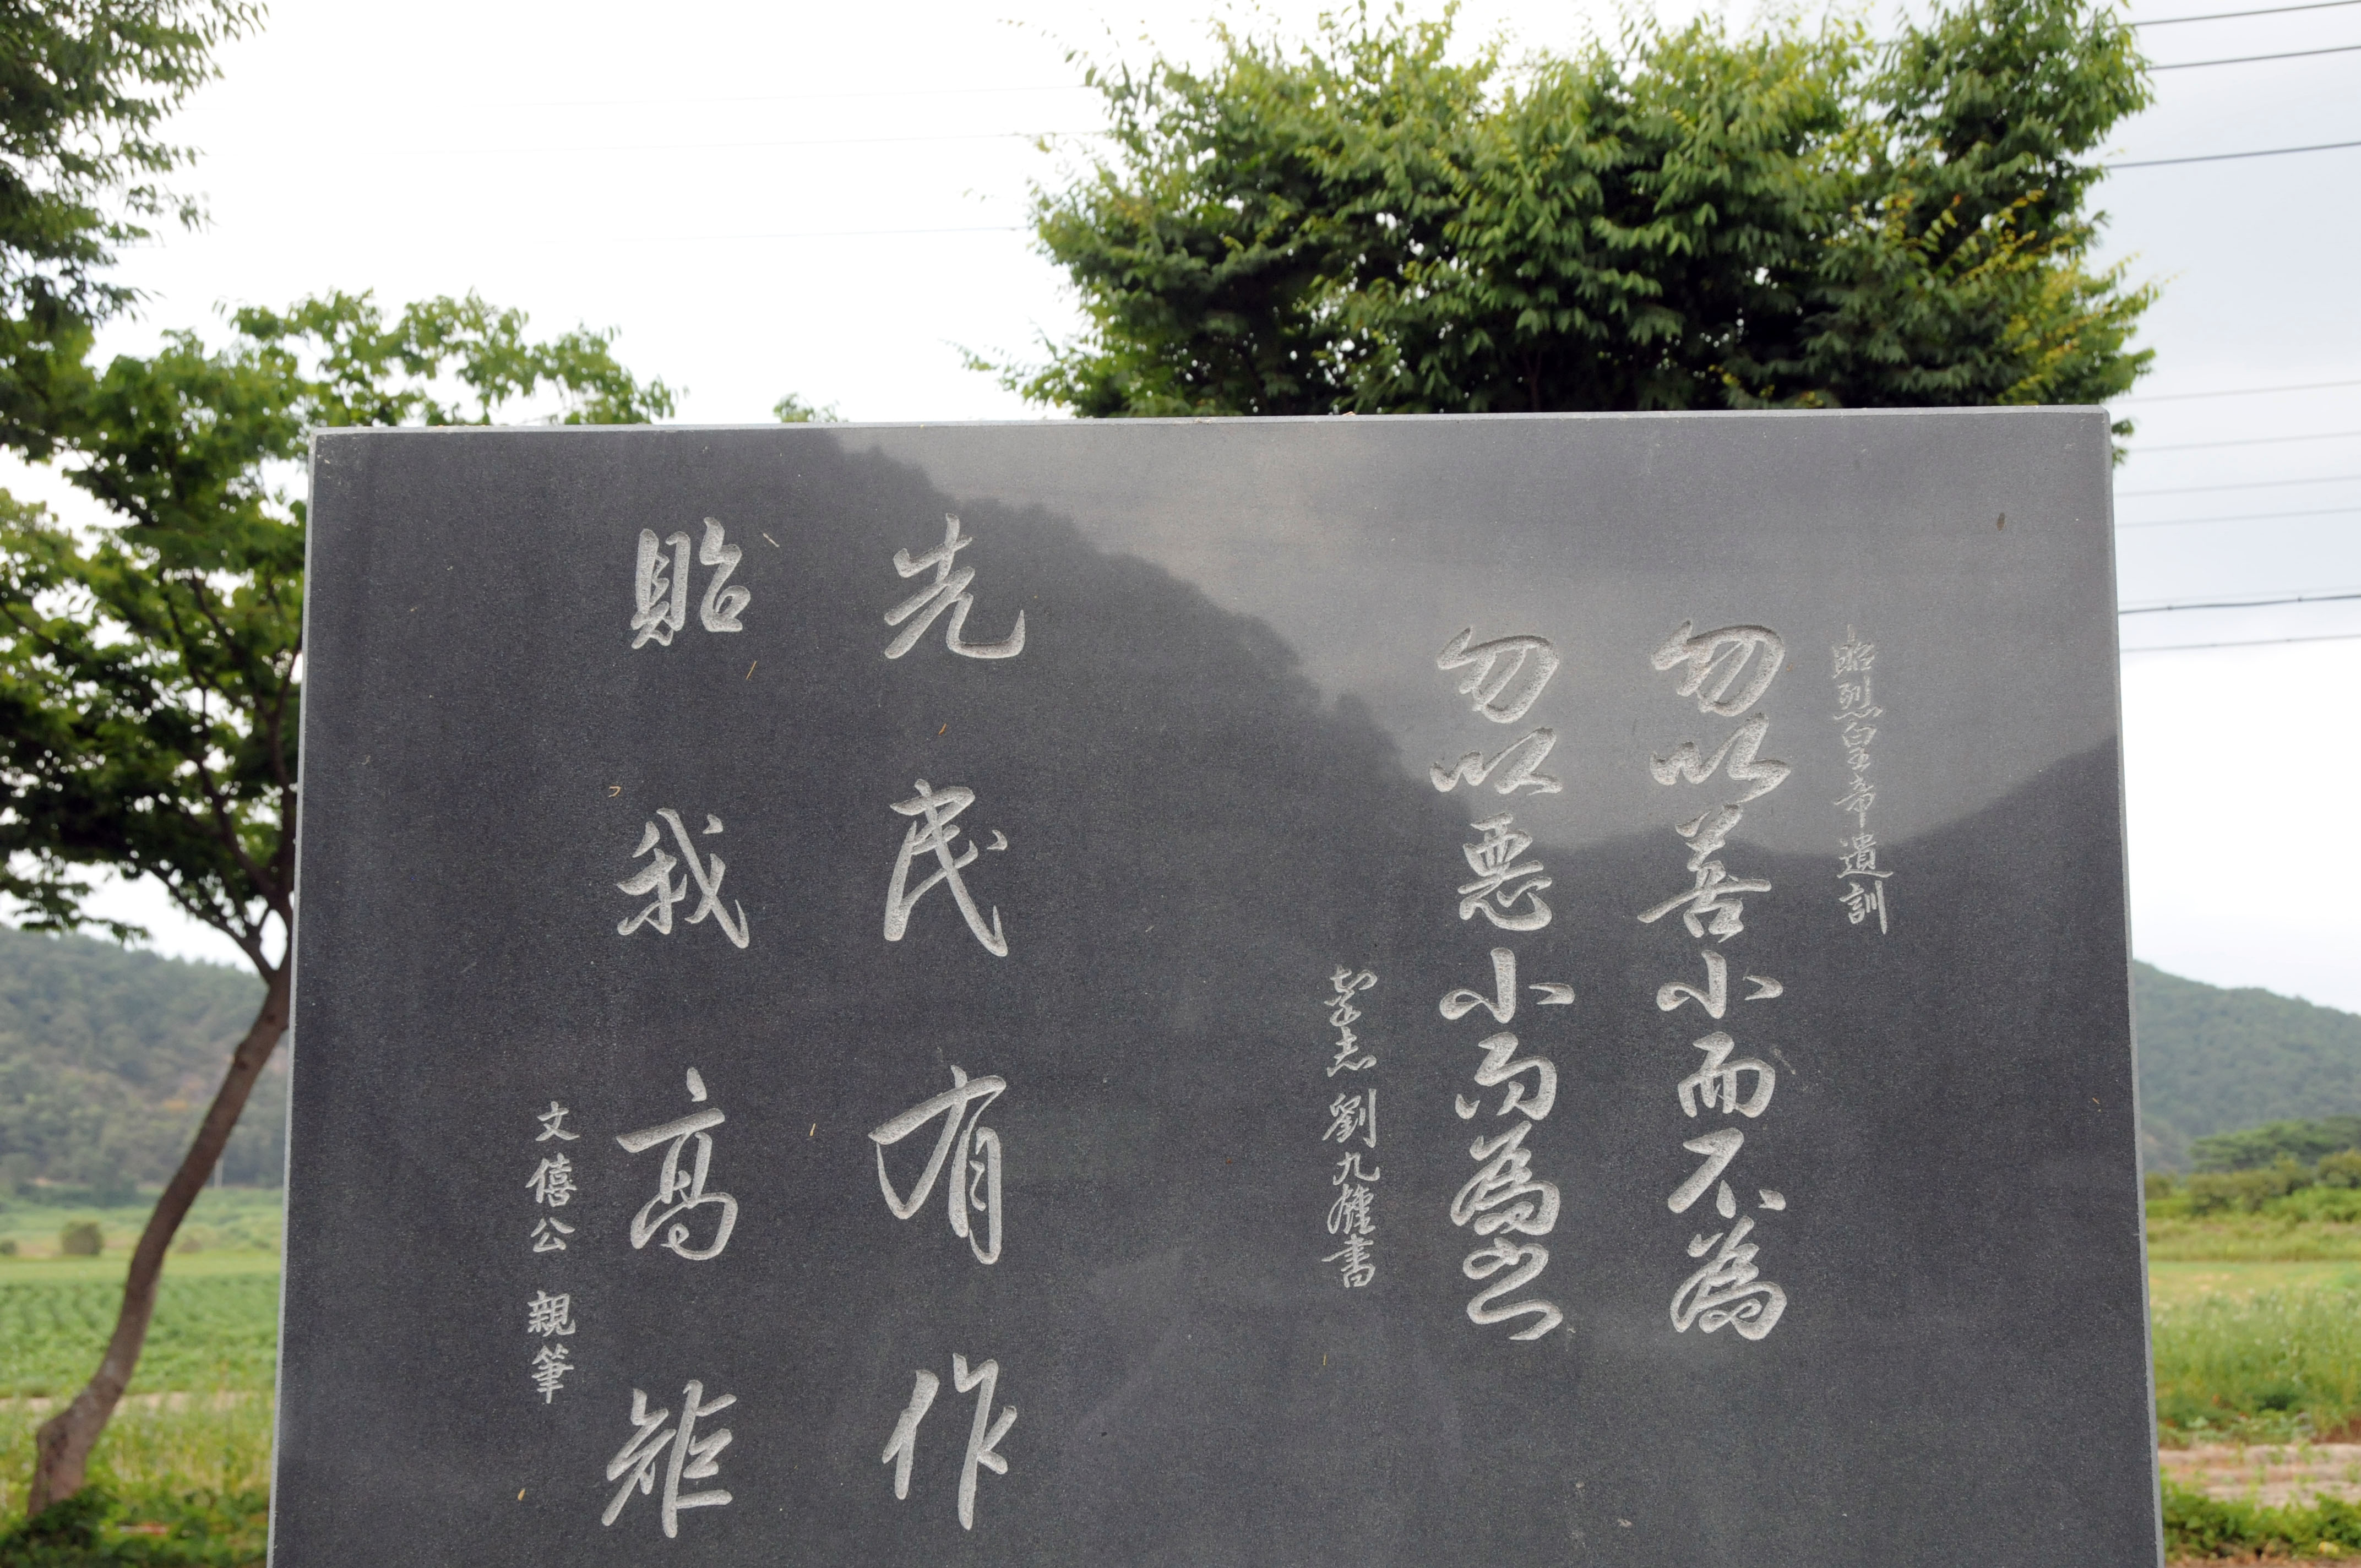 昭烈皇帝遺訓
勿以善小而不為
勿以悪小而為之
志 劉九書
先民有作
貽我高矩
文僖公 親筆